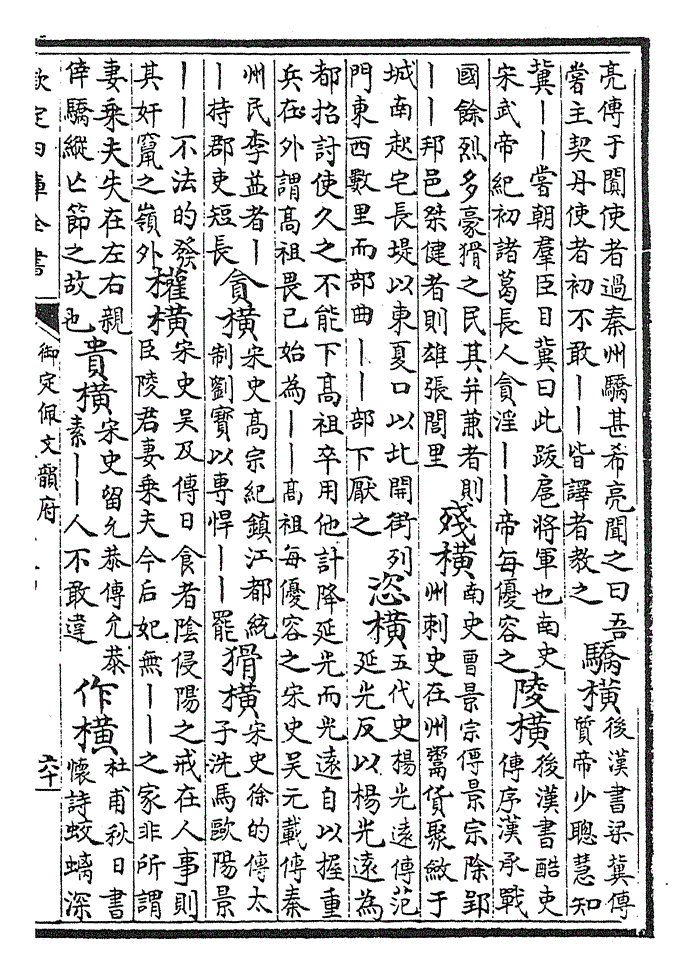 亮傳于闐使者過秦州驕甚希亮聞之曰吾
嘗主契丹使者初不敢丨丨皆譯者教之
驕橫
後漢書梁冀傳
質帝少聰慧知
冀丨丨嘗朝羣臣目冀曰此跋扈將軍也南史
宋武帝紀初諸葛長人貪淫丨丨帝每優容之
陵橫
後漢書酷吏
傳序漢承戰
國餘烈多豪猾之民其并兼者則
丨丨邦邑桀健者則雄張閭里
殘橫
南史曹景宗傳景宗除郢
州刺史在州鬻貨聚斂于
城南起宅長堤以東夏口以北開街列
門東西數里而部曲丨丨部下厭之
恣橫
五代史楊光遠傳范
延光反以楊光遠為
都招討使久之不能下高祖卒用他計降延光而光遠自以握重
兵在外謂高祖畏己始為丨丨高祖每優容之宋史吳元載傳秦
州民李益者丨
丨持郡吏短長
貪橫
宋史高宗紀鎮江都統
制劉寶以專悍丨丨罷
猾橫
宋史徐的傳太
子洗馬歐陽景
丨丨不法的發
其奸竄之嶺外
權橫
宋史吳及傳日食者陰侵陽之戒在人事則
臣陵君妻乘夫今后妃無丨丨之家非所謂
妻乘夫失在左右親
倖驕縱亡節之故也
貴橫
宋史留允恭傳允恭
素丨丨人不敢違
作橫
杜甫秋日書
懷詩蛟螭深
欽定四庫全書
御定佩文韻府
六十